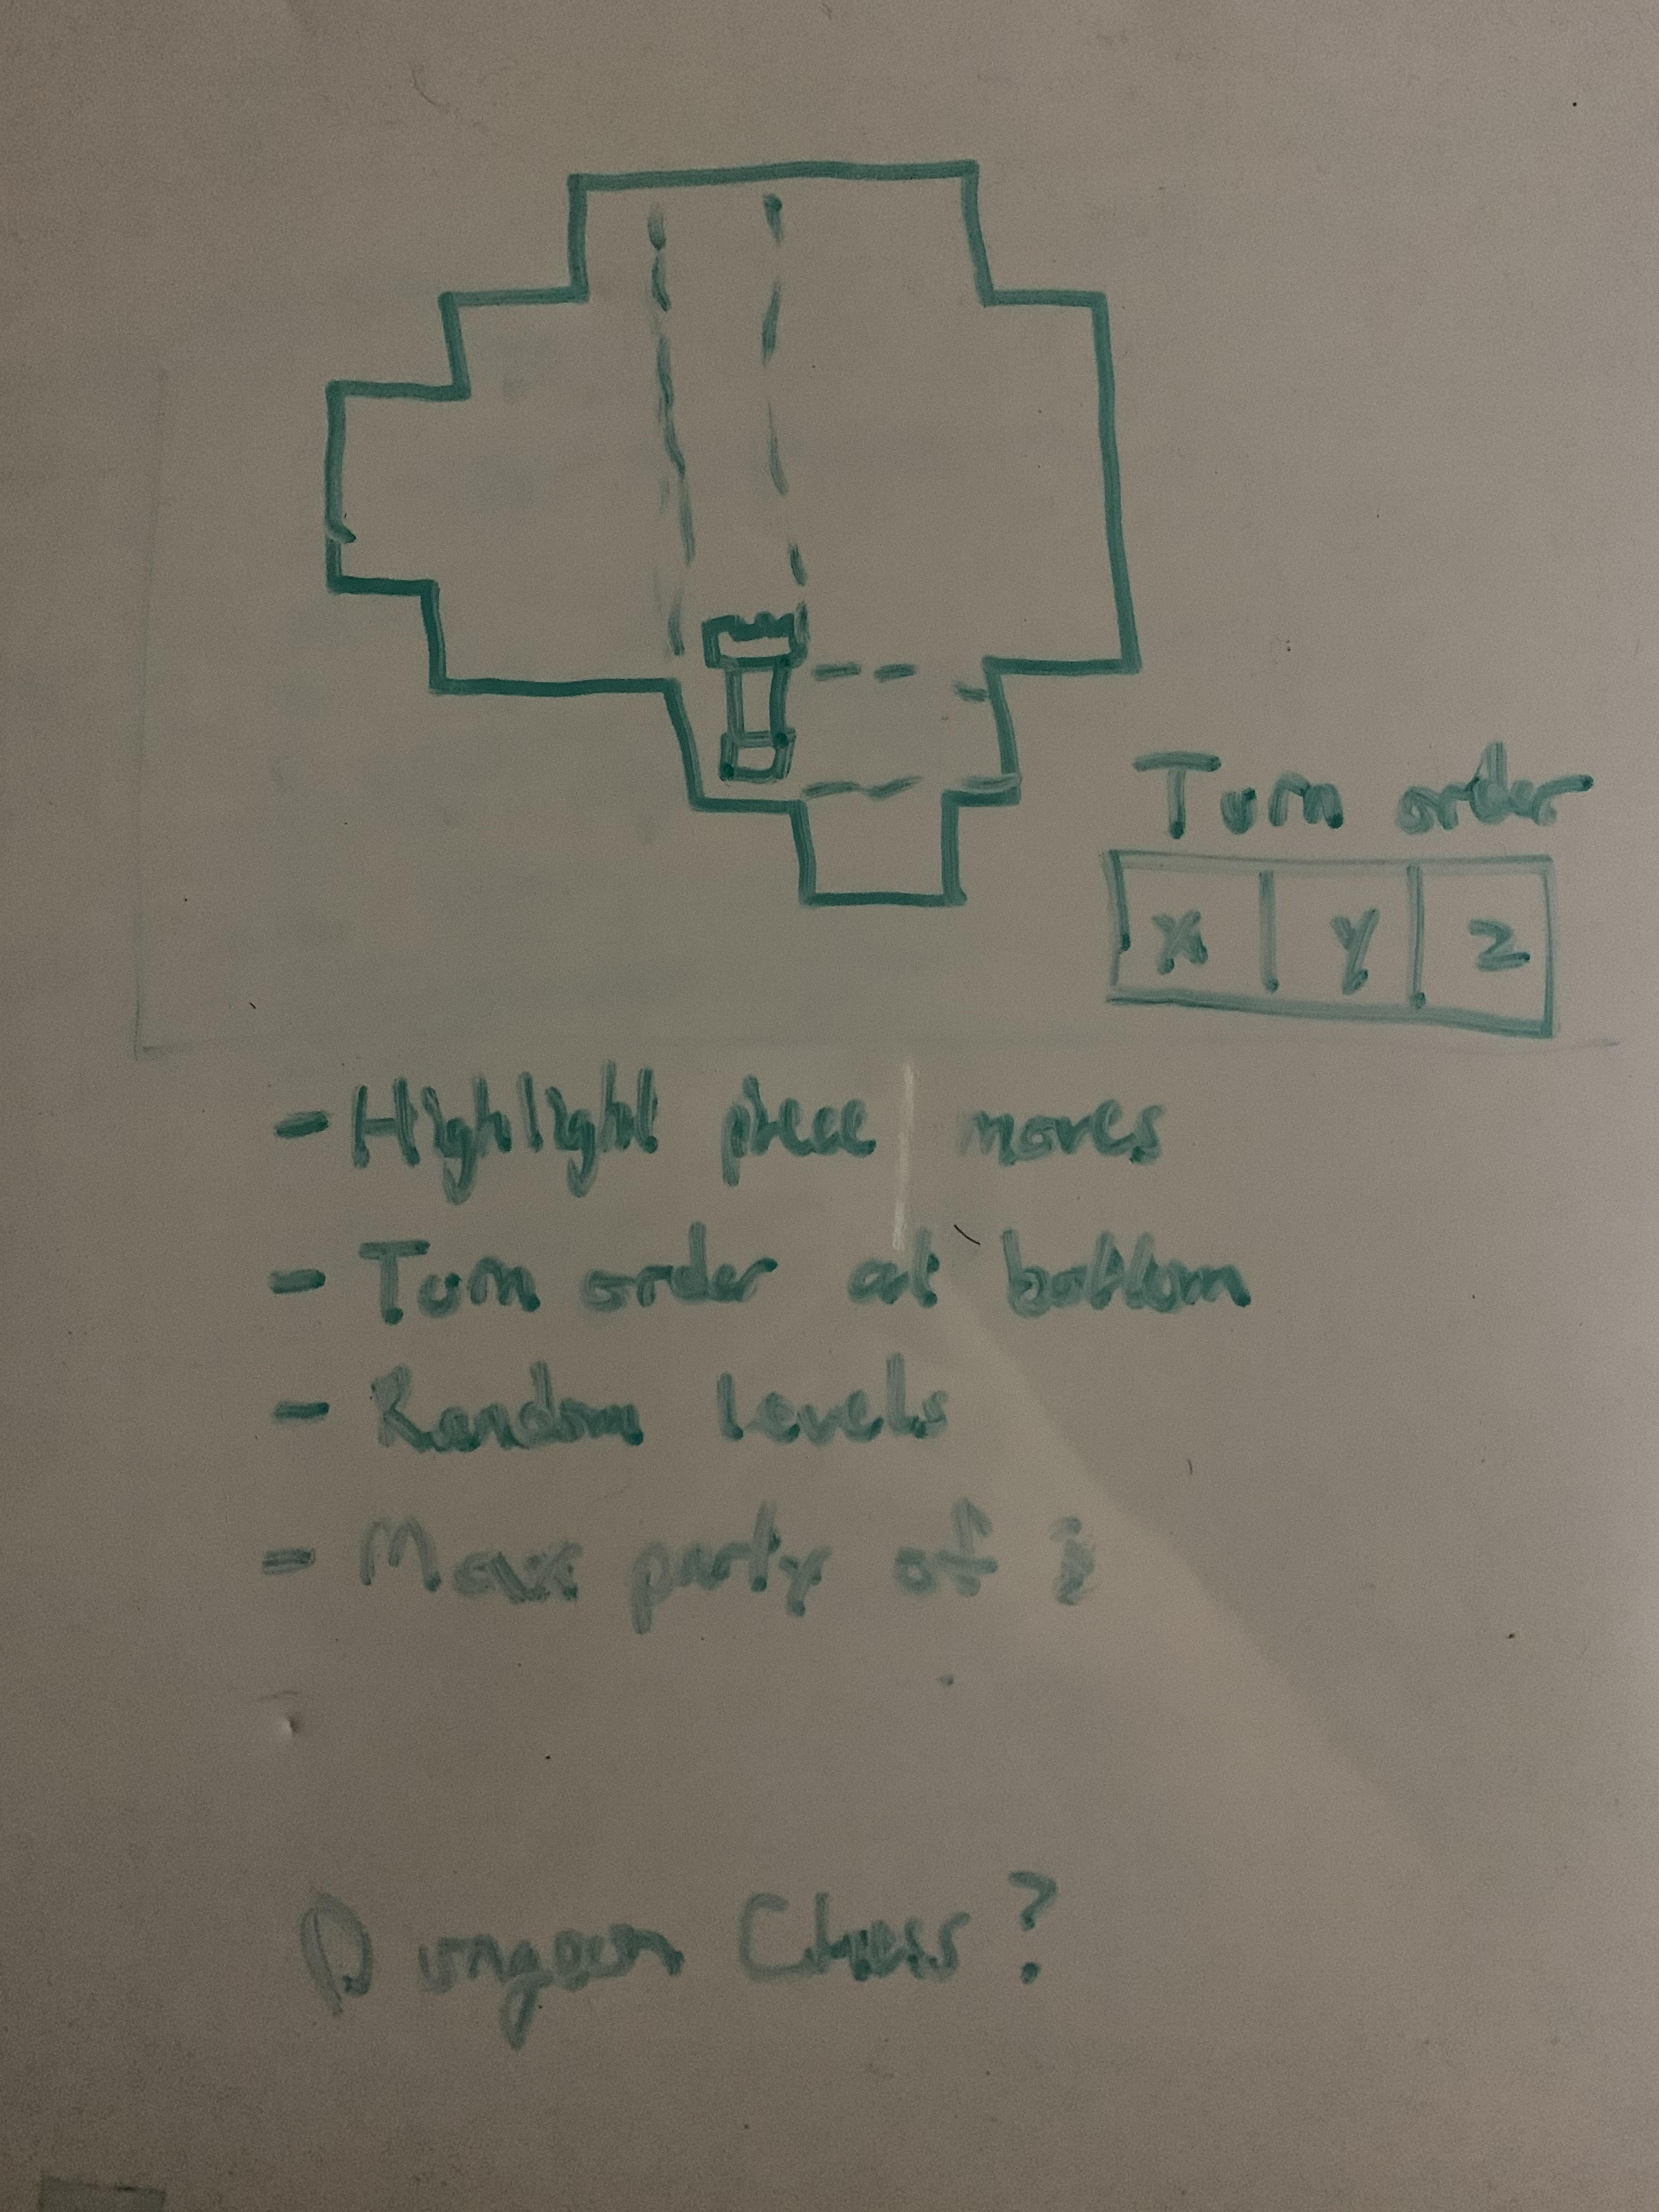 Turn order
X Y Z
- Highlight piece moves
- Turn order at bottom
- Random levels
- Max party of
Dungeon Chess?